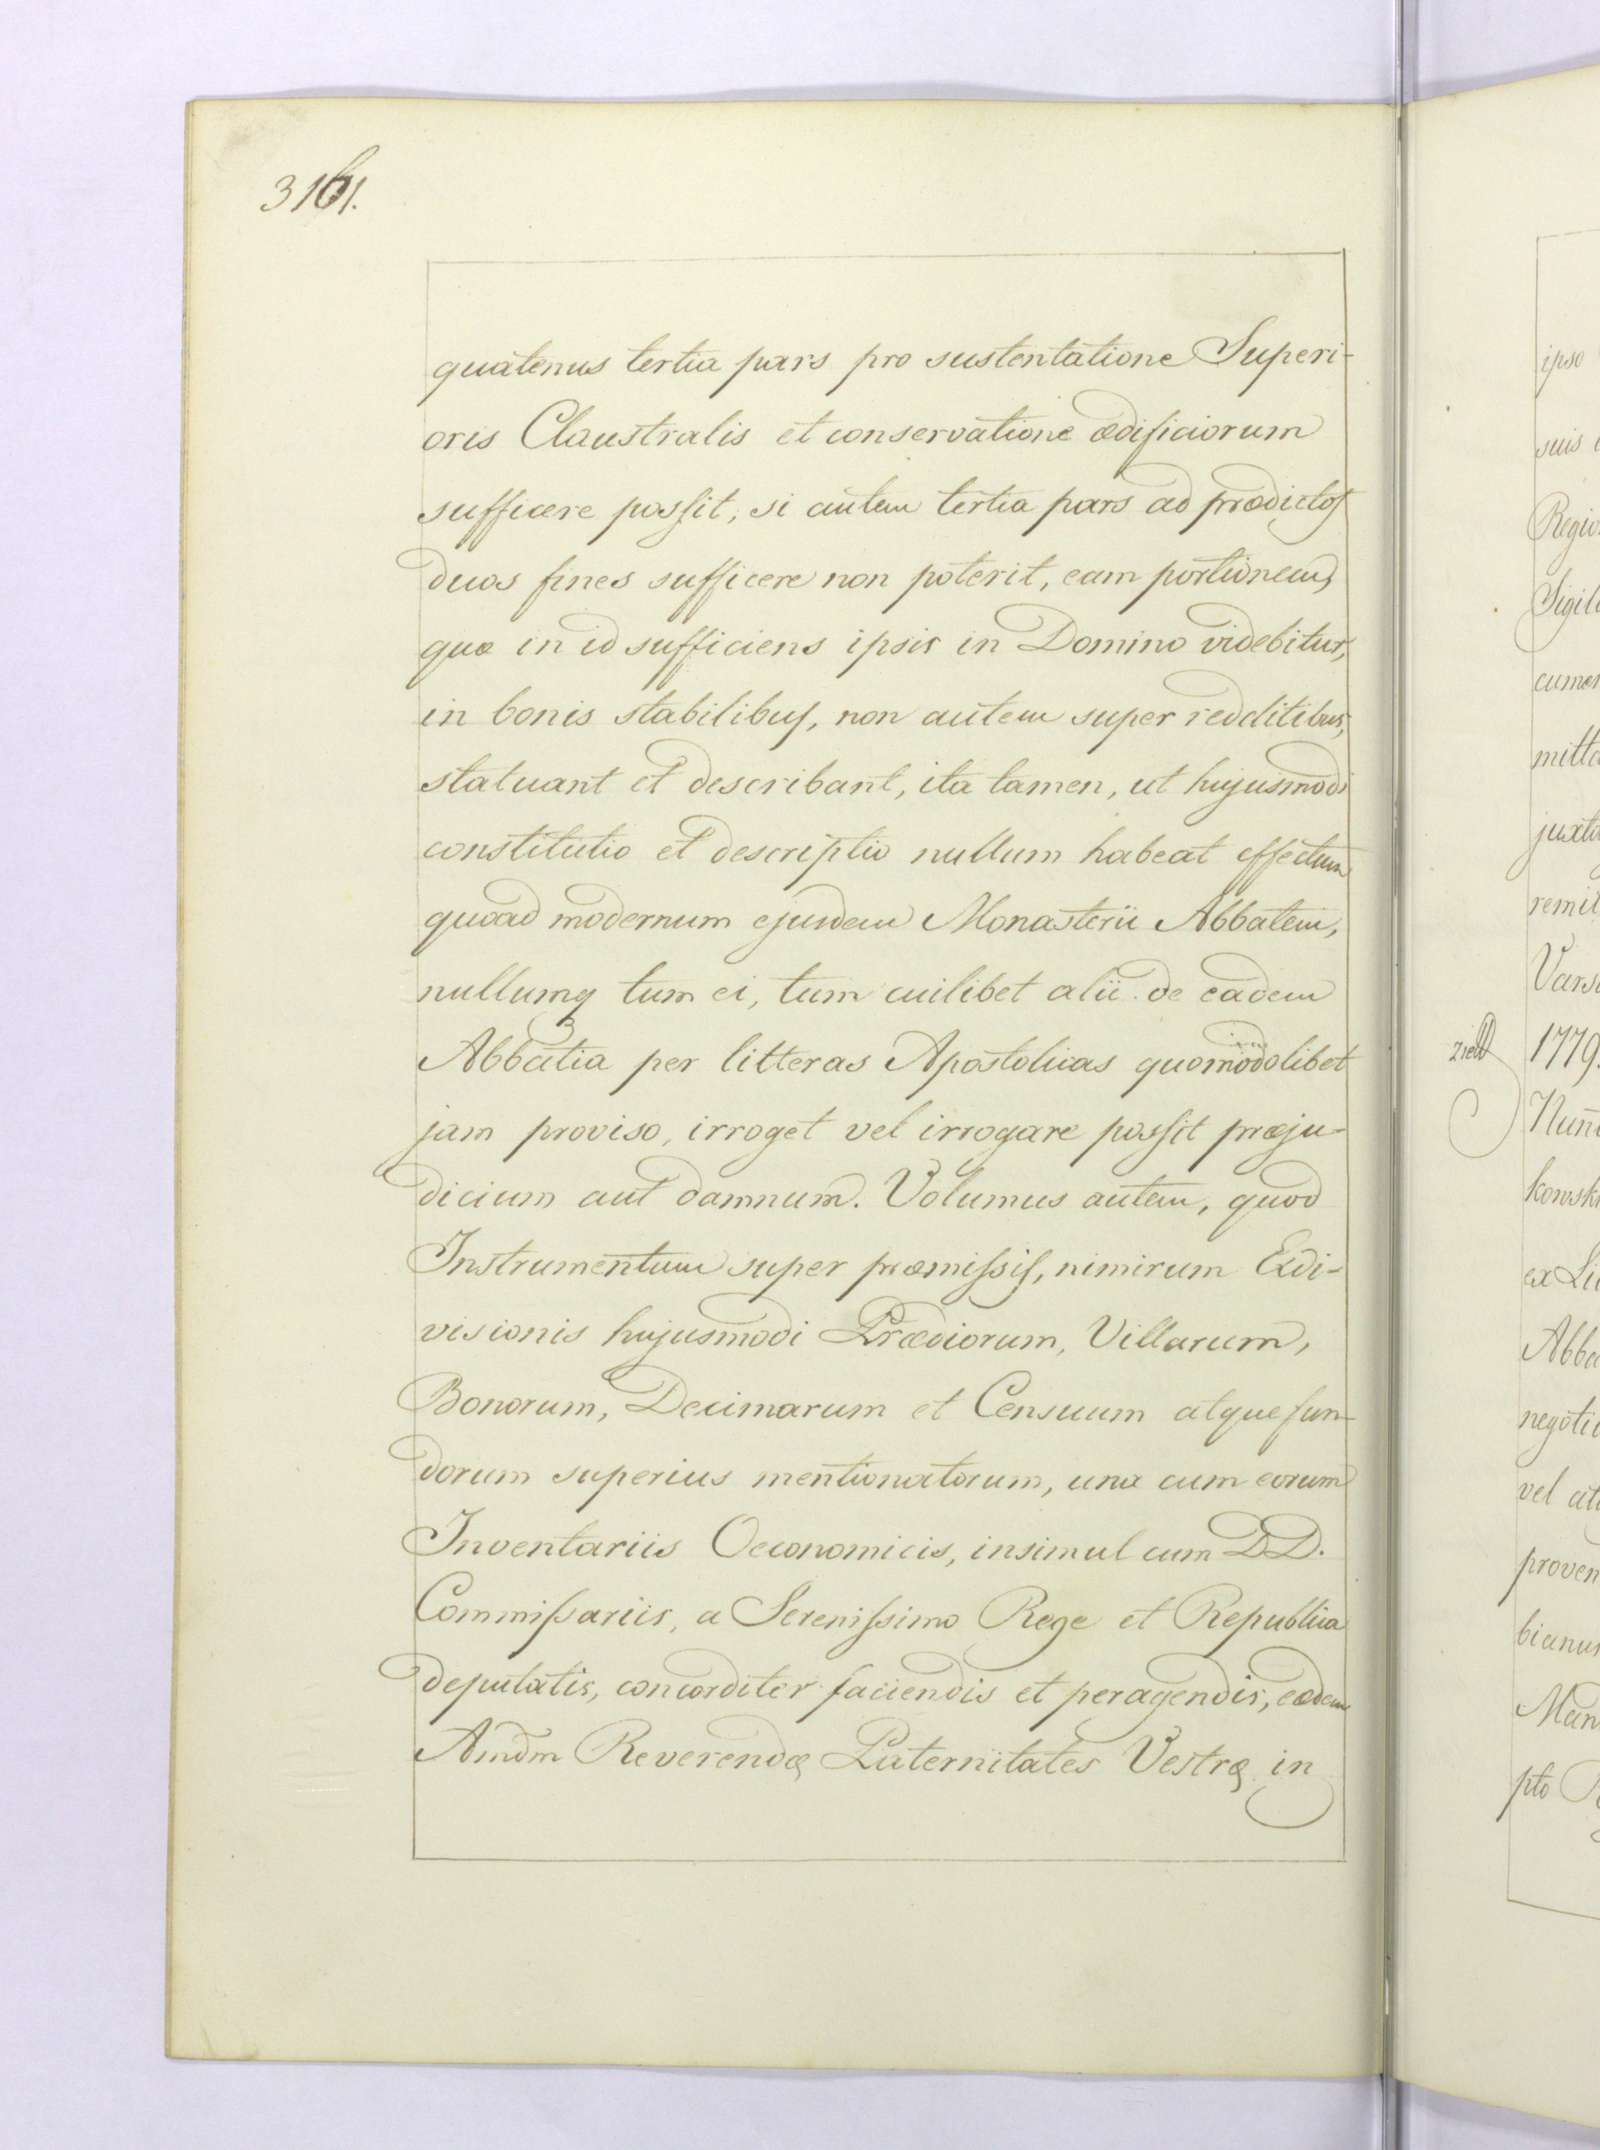 3161.
quatenus tertia pars pro sustentatione Superi-
oris Claustralis et conservatione ædificiorum
sufficere possit, si autem tertia pars ad prædictos
duos fines sufficere non poterit, eam portionem,
quæ in id sufficiens ipsis in Domino videbitur,
in bonis stabilibus, non autem super redditibus,
statuant et describant, ita tamen, ut hujusmodi
constitutio et descriptio nullum habeat effectum
quoad modernum ejusdem Monasterii Abbatem,
nullumq tum ei, tum cuilibet alii de eadem
Abbatia per litteras Apostolicas quomodolibet
jam proviso, irroget vel irrogare possit præju-
dicium aut damnum. Volumus autem, quod
Instrumentum super præmissis, nimirum Exdi-
visionis hujusmodi Prædiorum, Villarum,
Bonorum, Decimarum et Censuum atque fun-
dorum superius mentionatorum, una cum eorum
Inventariis Oeconomicis, insimul cum DD.
Commissariis, a Serenissimo Rege et Republica
deputatis, concorditer faciendis et peragendis, eædem
Amdm Reverendæ Paternitates Vestræ in
ipso
suis
Regio
Sigil
cumen
mitta
juxta
remit
Vars
1779.
Nun
kowsk
ex Li
Abba
negoti
vel
proven
bianus
Man
pto